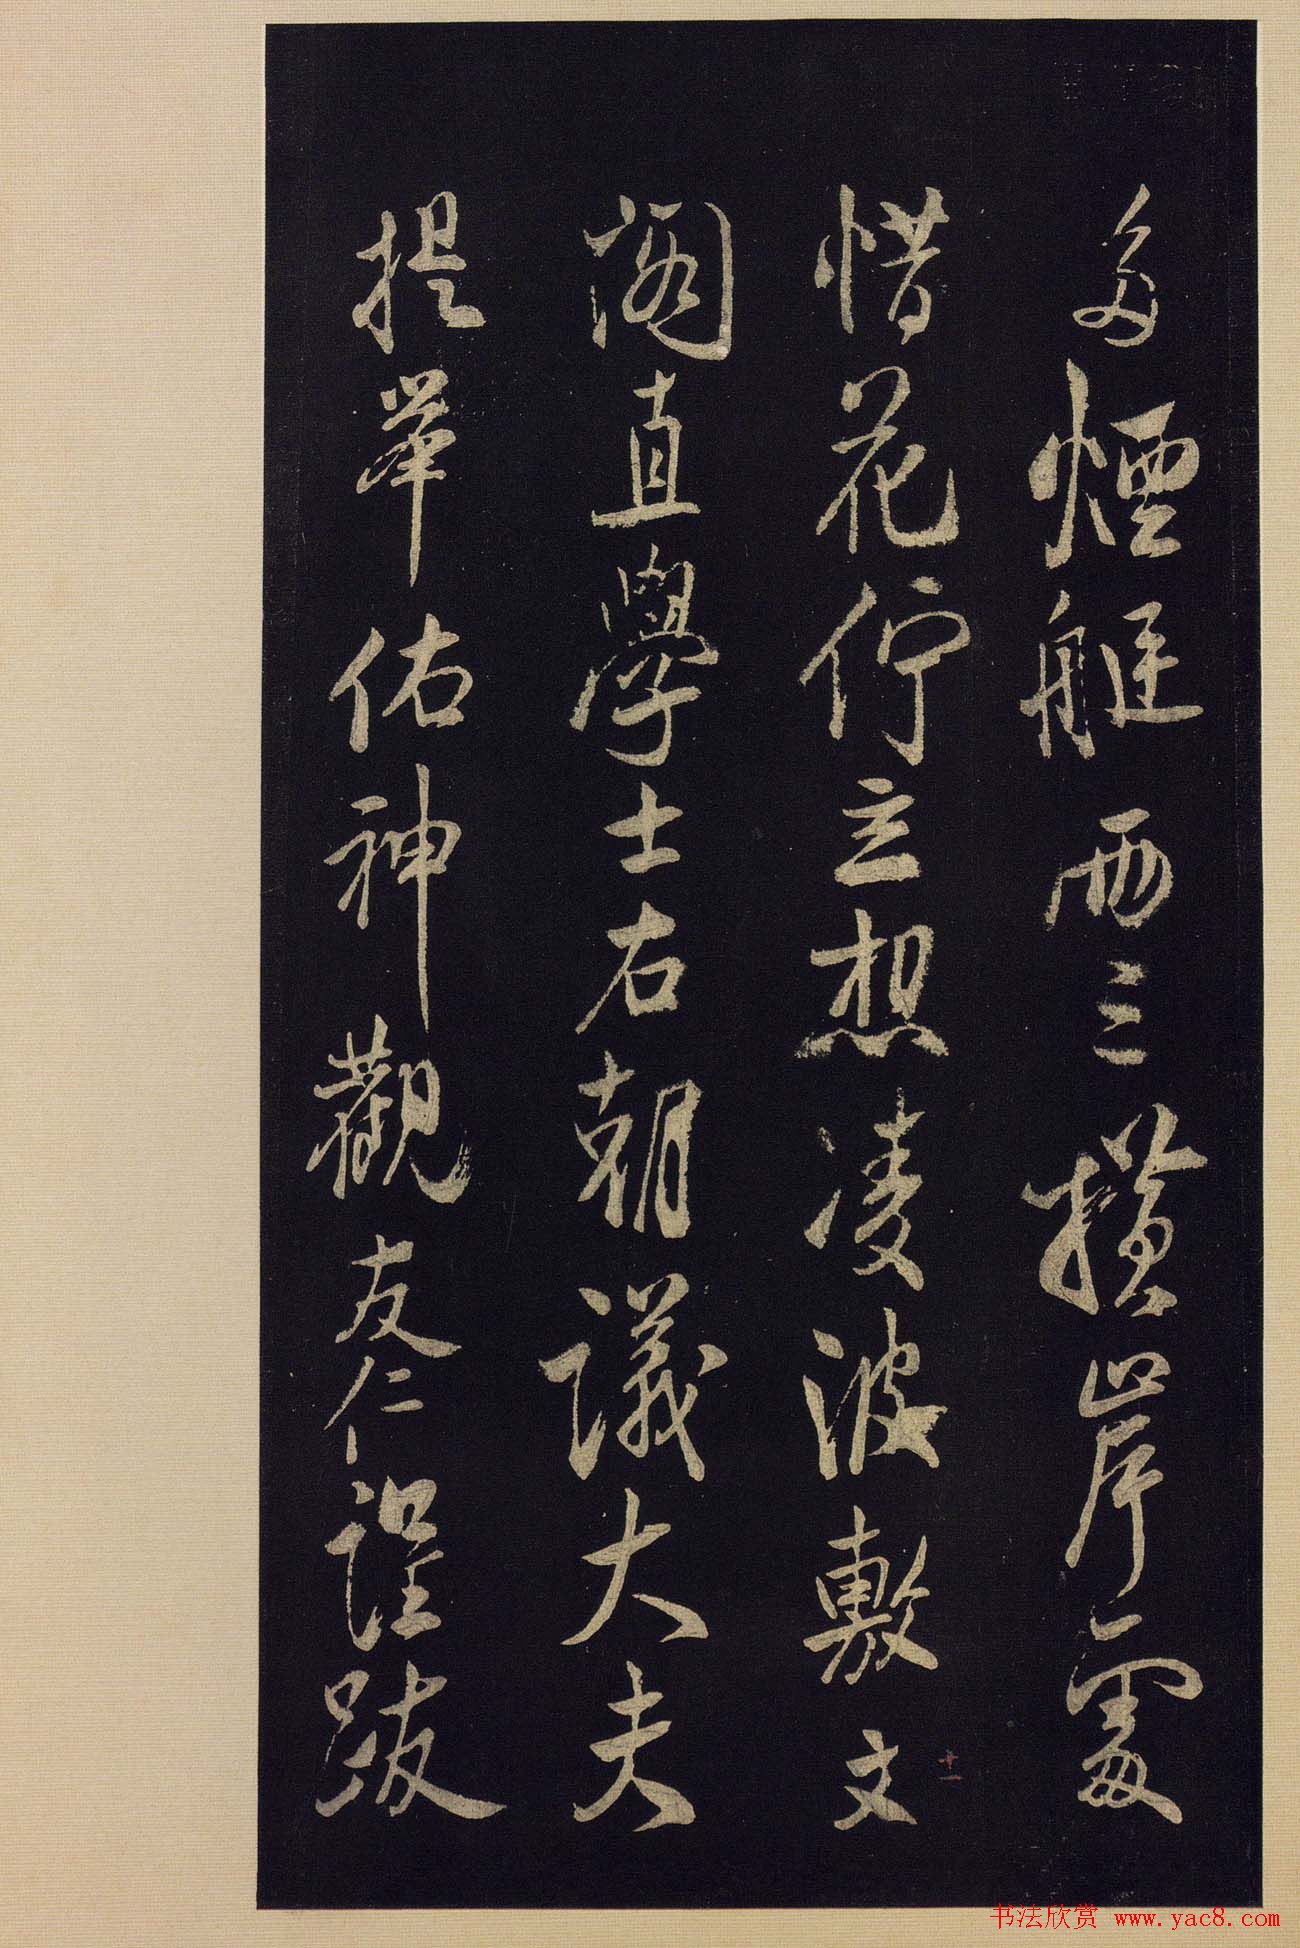 煙艇兩三橫岸
惜花佇立想凌波敷文
十一
閣直學士右朝議大夫
提舉佑神觀友仁謹跋
书法欣赏 www.yac8.com